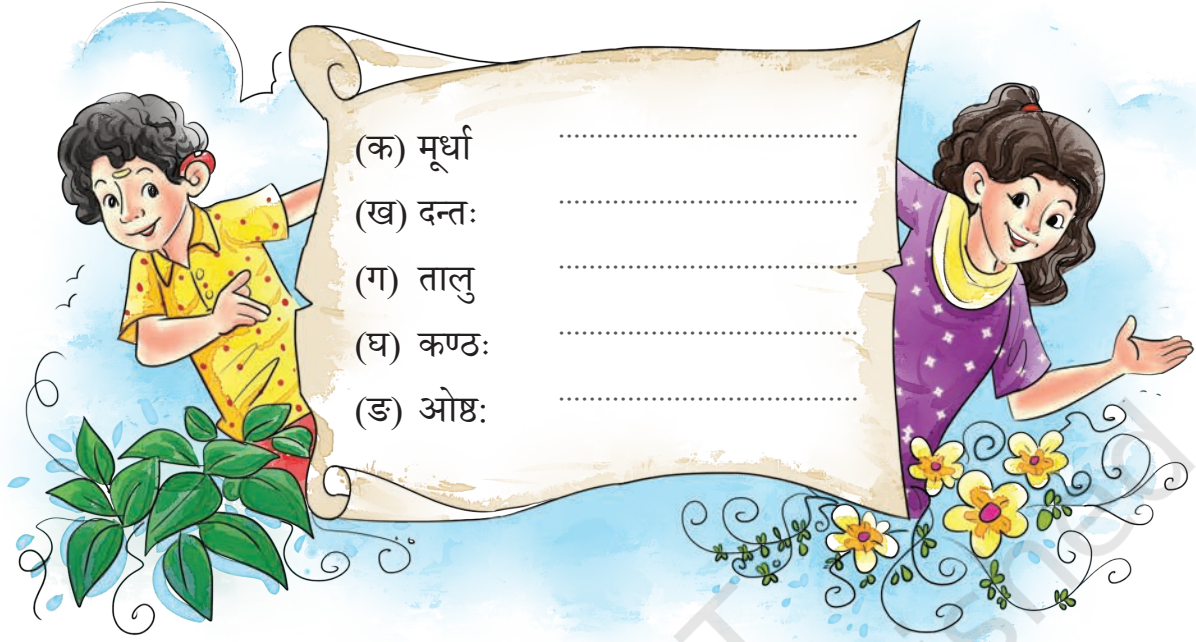 (क) मूर्धा ................................................
(ख) दन्तः ................................................
(ग) तालु ................................................
(घ) कण्ठः ................................................
(ङ) ओष्ठ: ................................................